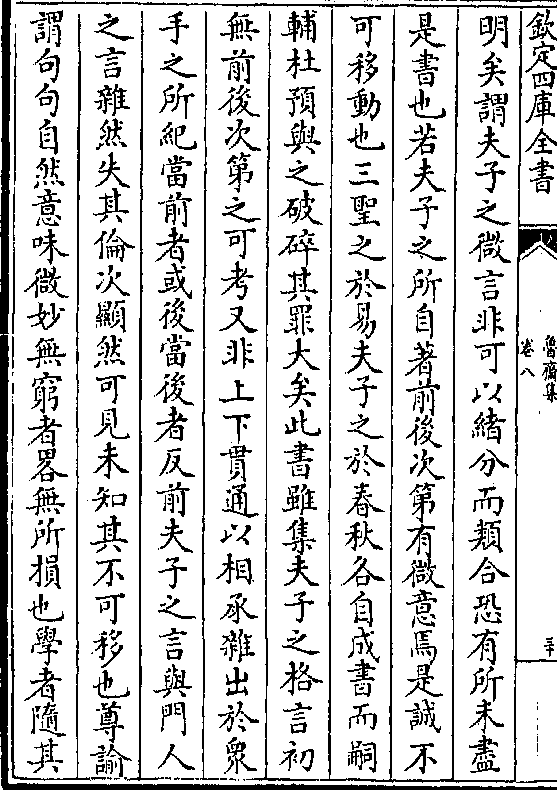 欽定四庫全書
魯齋集
卷八
三十
明矣謂夫子之微言非可以緒分而類合恐有所未盡
是書也若夫子之所自著前後次第有微意焉是誠不
可移動也三聖之於易夫子之於春秋各自成書而嗣
輔杜預與之破碎其罪大矣此書雖集夫子之格言初
無前後次第之可考又非上下貫通以相承雜出於衆
手之所紀當前者或後當後者反前夫子之言與門人
之言雜然失其倫次顯然可見未知其不可移也尊諭
謂句句自然意味微妙無窮者畧無所損也學者隨其